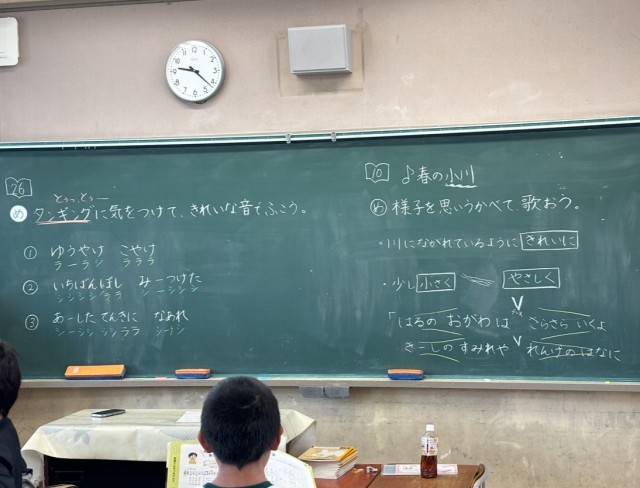 26
とぅっ、とぅー
め タンギングに気をつけて、きれいな音でふこう。
① ゆうやけ こやけ
ラーラシ ラララ
② いちばんぼし みーつけた
③ あーした てんきに なあれ
10 ♪春の小川
め 様子を思いうかべて 歌おう。
・川にながれているように きれいに
・少し 小さく やさしく
「はるの おがわは さらさら いくよ
きーしの すみれや れんげの はなに